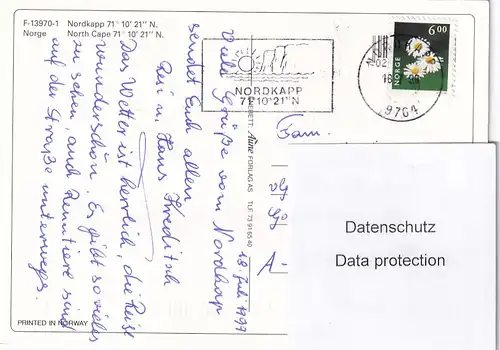 F-13970-1 Nordkapp 71° 10' 21" N.
Norge North Cape 71° 10' 21" N.
Viele Grüße vom Nordkap
sendet Euch allen
Hans
18. Juli 1999
Das Wetter ist herrlich, die Reise
wunderschön. Es gibt so vieles
zu sehen, auch Renntiere sind
auf der Straße unterwegs.
PRINTED IN NORWAY
Aune FORLAG AS TLF. 73 91 65 40
NORDKAPP
71°10'21"N
9764
NORGE
6 00
Fam.
A-
Datenschutz
Data protection